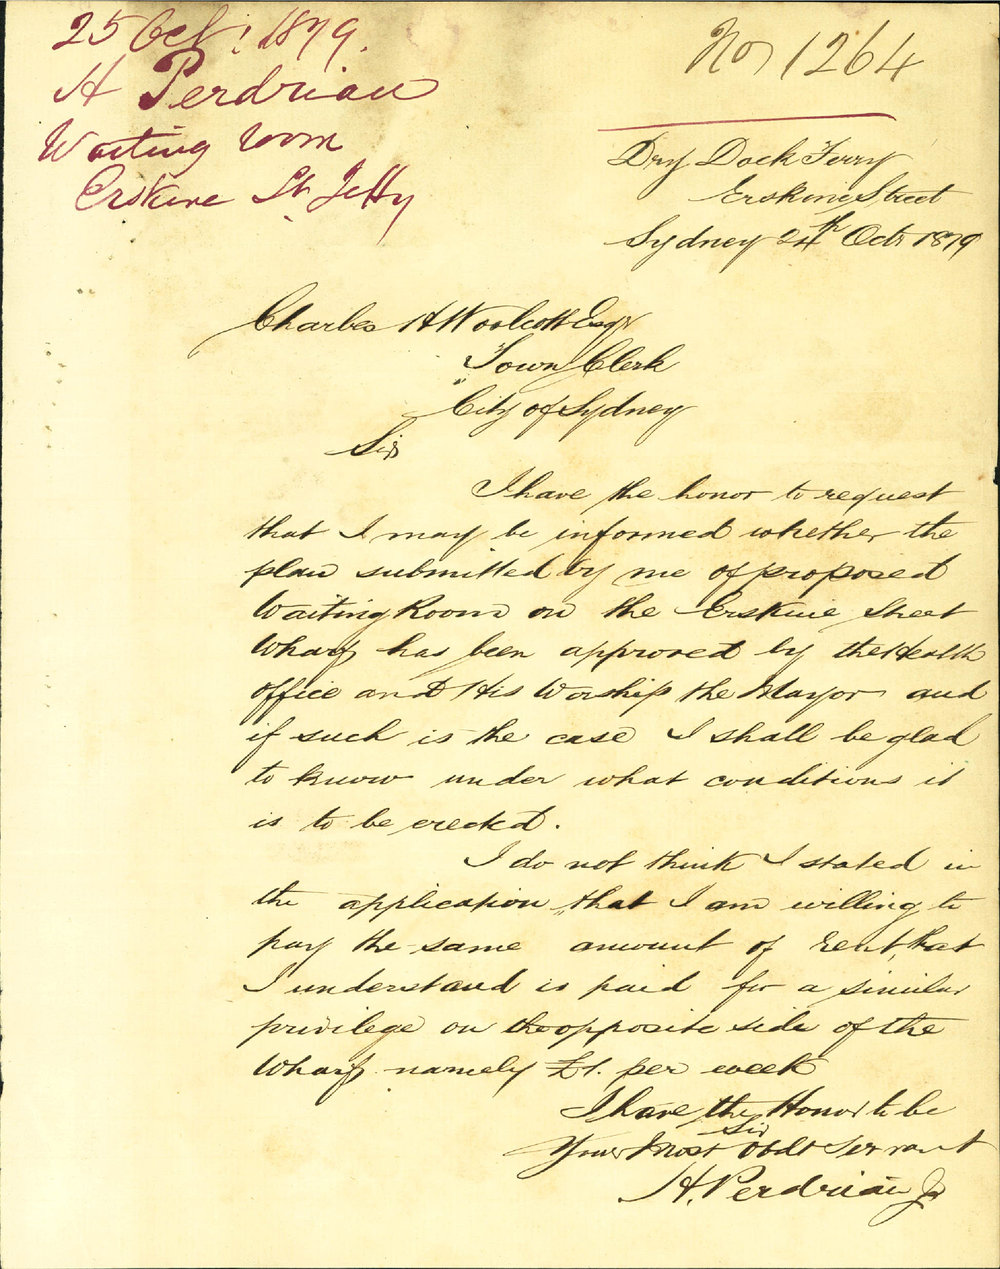 25 Oct. 1879.
H Perdriau
Waiting room
Erskine St Jetty
No 1264
Dry Dock Ferry
Erskine Street
Sydney 24th Octr 1879
Charles H Woolcott Esqr
Town Clerk
City of Sydney
Sir
I have the honor to request
that I may be informed whether the
plan submitted by me of proposed
Waiting Room on the Erskine Street
Wharf has been approved by the Health
office and His Worship the Mayor and
if such is the case I shall be glad
to know under what conditions it
is to be erected.
I do not think I stated in
the application that I am willing to
pay the same amount of rent, that
I understand is paid for a similar
privilege on the opposite side of the
Wharf namely £1. per week
I have the Honor to be
Sir
Your Most Obdt Servant
H. Perdriau Jr